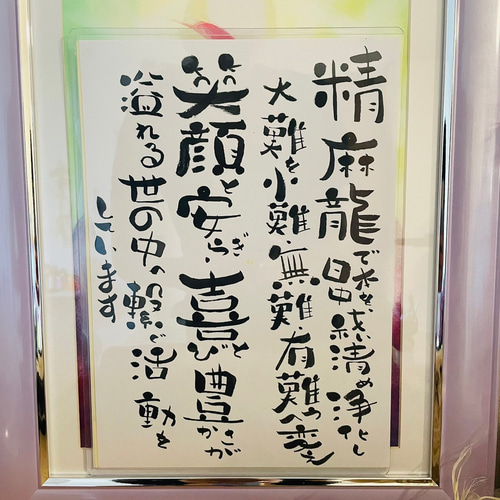 精麻龍で清め浄化し
大難を小難・無難・有難へ変え
笑顔と安らぎ・喜びと豊かさが
溢れる世の中へ繋ぐ活動を
しています